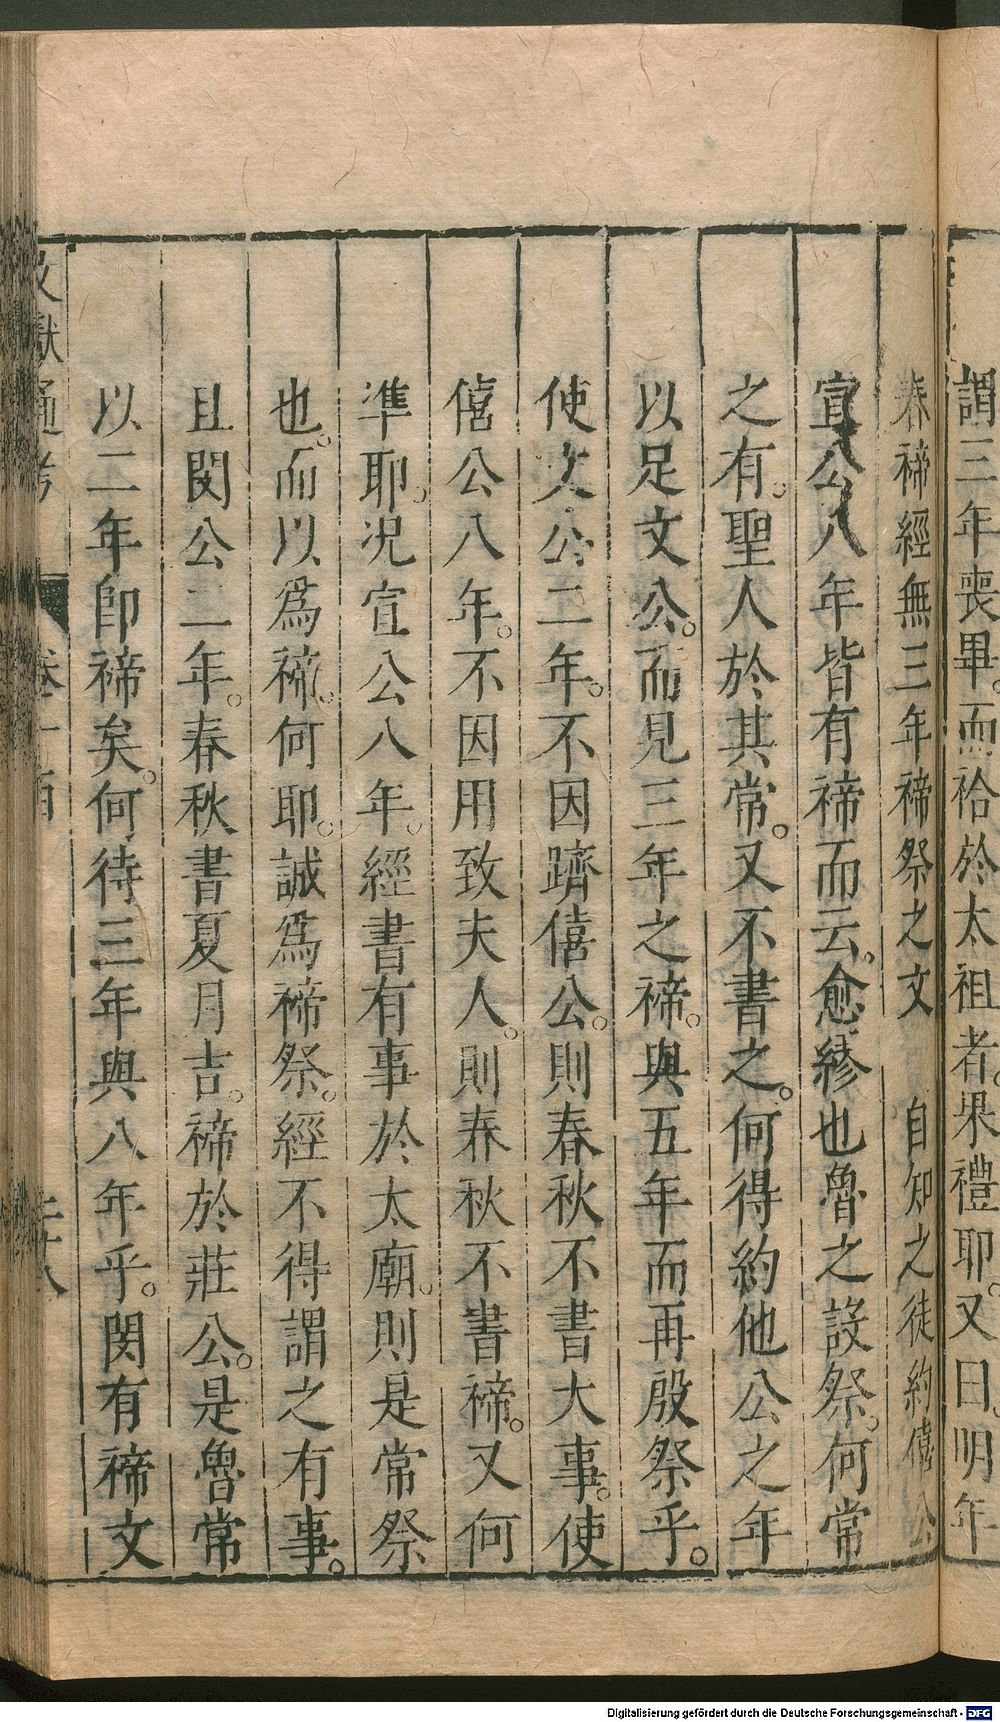 謂三年喪畢而祫於太祖者果禮耶又曰明年
春禘經無三年禘祭之文 自知之徒約僖公
宣公八年皆有禘而云愈繆也魯之設祭何常
之有聖人於其常又不書之何得約他公之年
以足文公而見三年之禘與五年而再殷祭乎
使文公二年不因躋僖公則春秋不書大事使
僖公八年不因用致夫人則春秋不書禘又何
準耶况宣公八年經書有事於太廟則是常祭
也而以爲禘何耶誠爲禘祭經不得謂之有事
且閔公二年春秋書夏月吉禘於莊公是魯常
以二年即禘矣何待三年與八年乎閔有禘文
文獻通考 卷一百
Digitalisierung gefördert durch die Deutsche Forschungsgemeinschaft - DFG